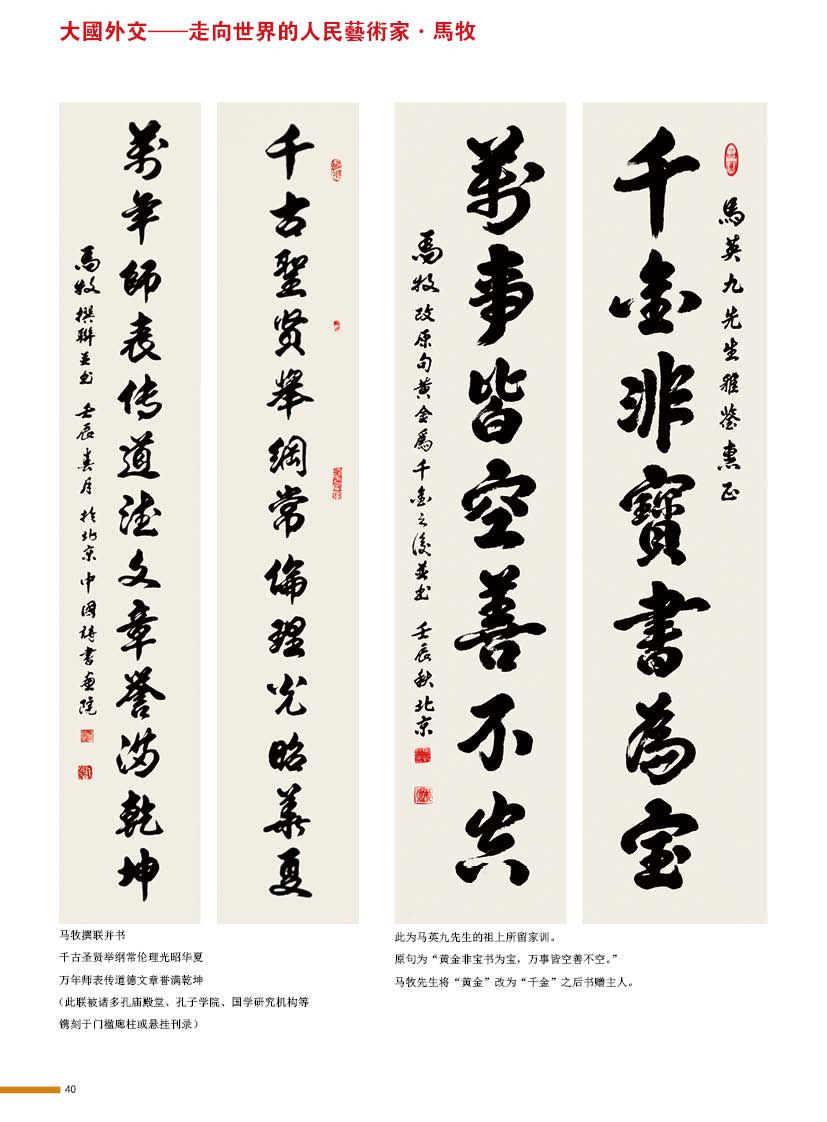 大國外交——走向世界的人民藝術家·馬牧
千古聖贤舉綱常倫理光昭華夏
萬年師表传道德文章誉满乾坤
馬牧撰聯並书 壬辰春月於北京中国詩書画院
馬英九先生雅鑒惠正
千金非寶書為宝
萬事皆空善不空
馬牧改原句黄金為千金之後並书 壬辰秋北京
马牧撰联并书
千古圣贤举纲常伦理光昭华夏
万年师表传道德文章誉满乾坤
（此联被诸多孔庙殿堂、孔子学院、国学研究机构等
镌刻于门楹廊柱或悬挂刊录）
此为马英九先生的祖上所留家训。
原句为“黄金非宝书为宝，万事皆空善不空。”
马牧先生将“黄金”改为“千金”之后书赠主人。
40